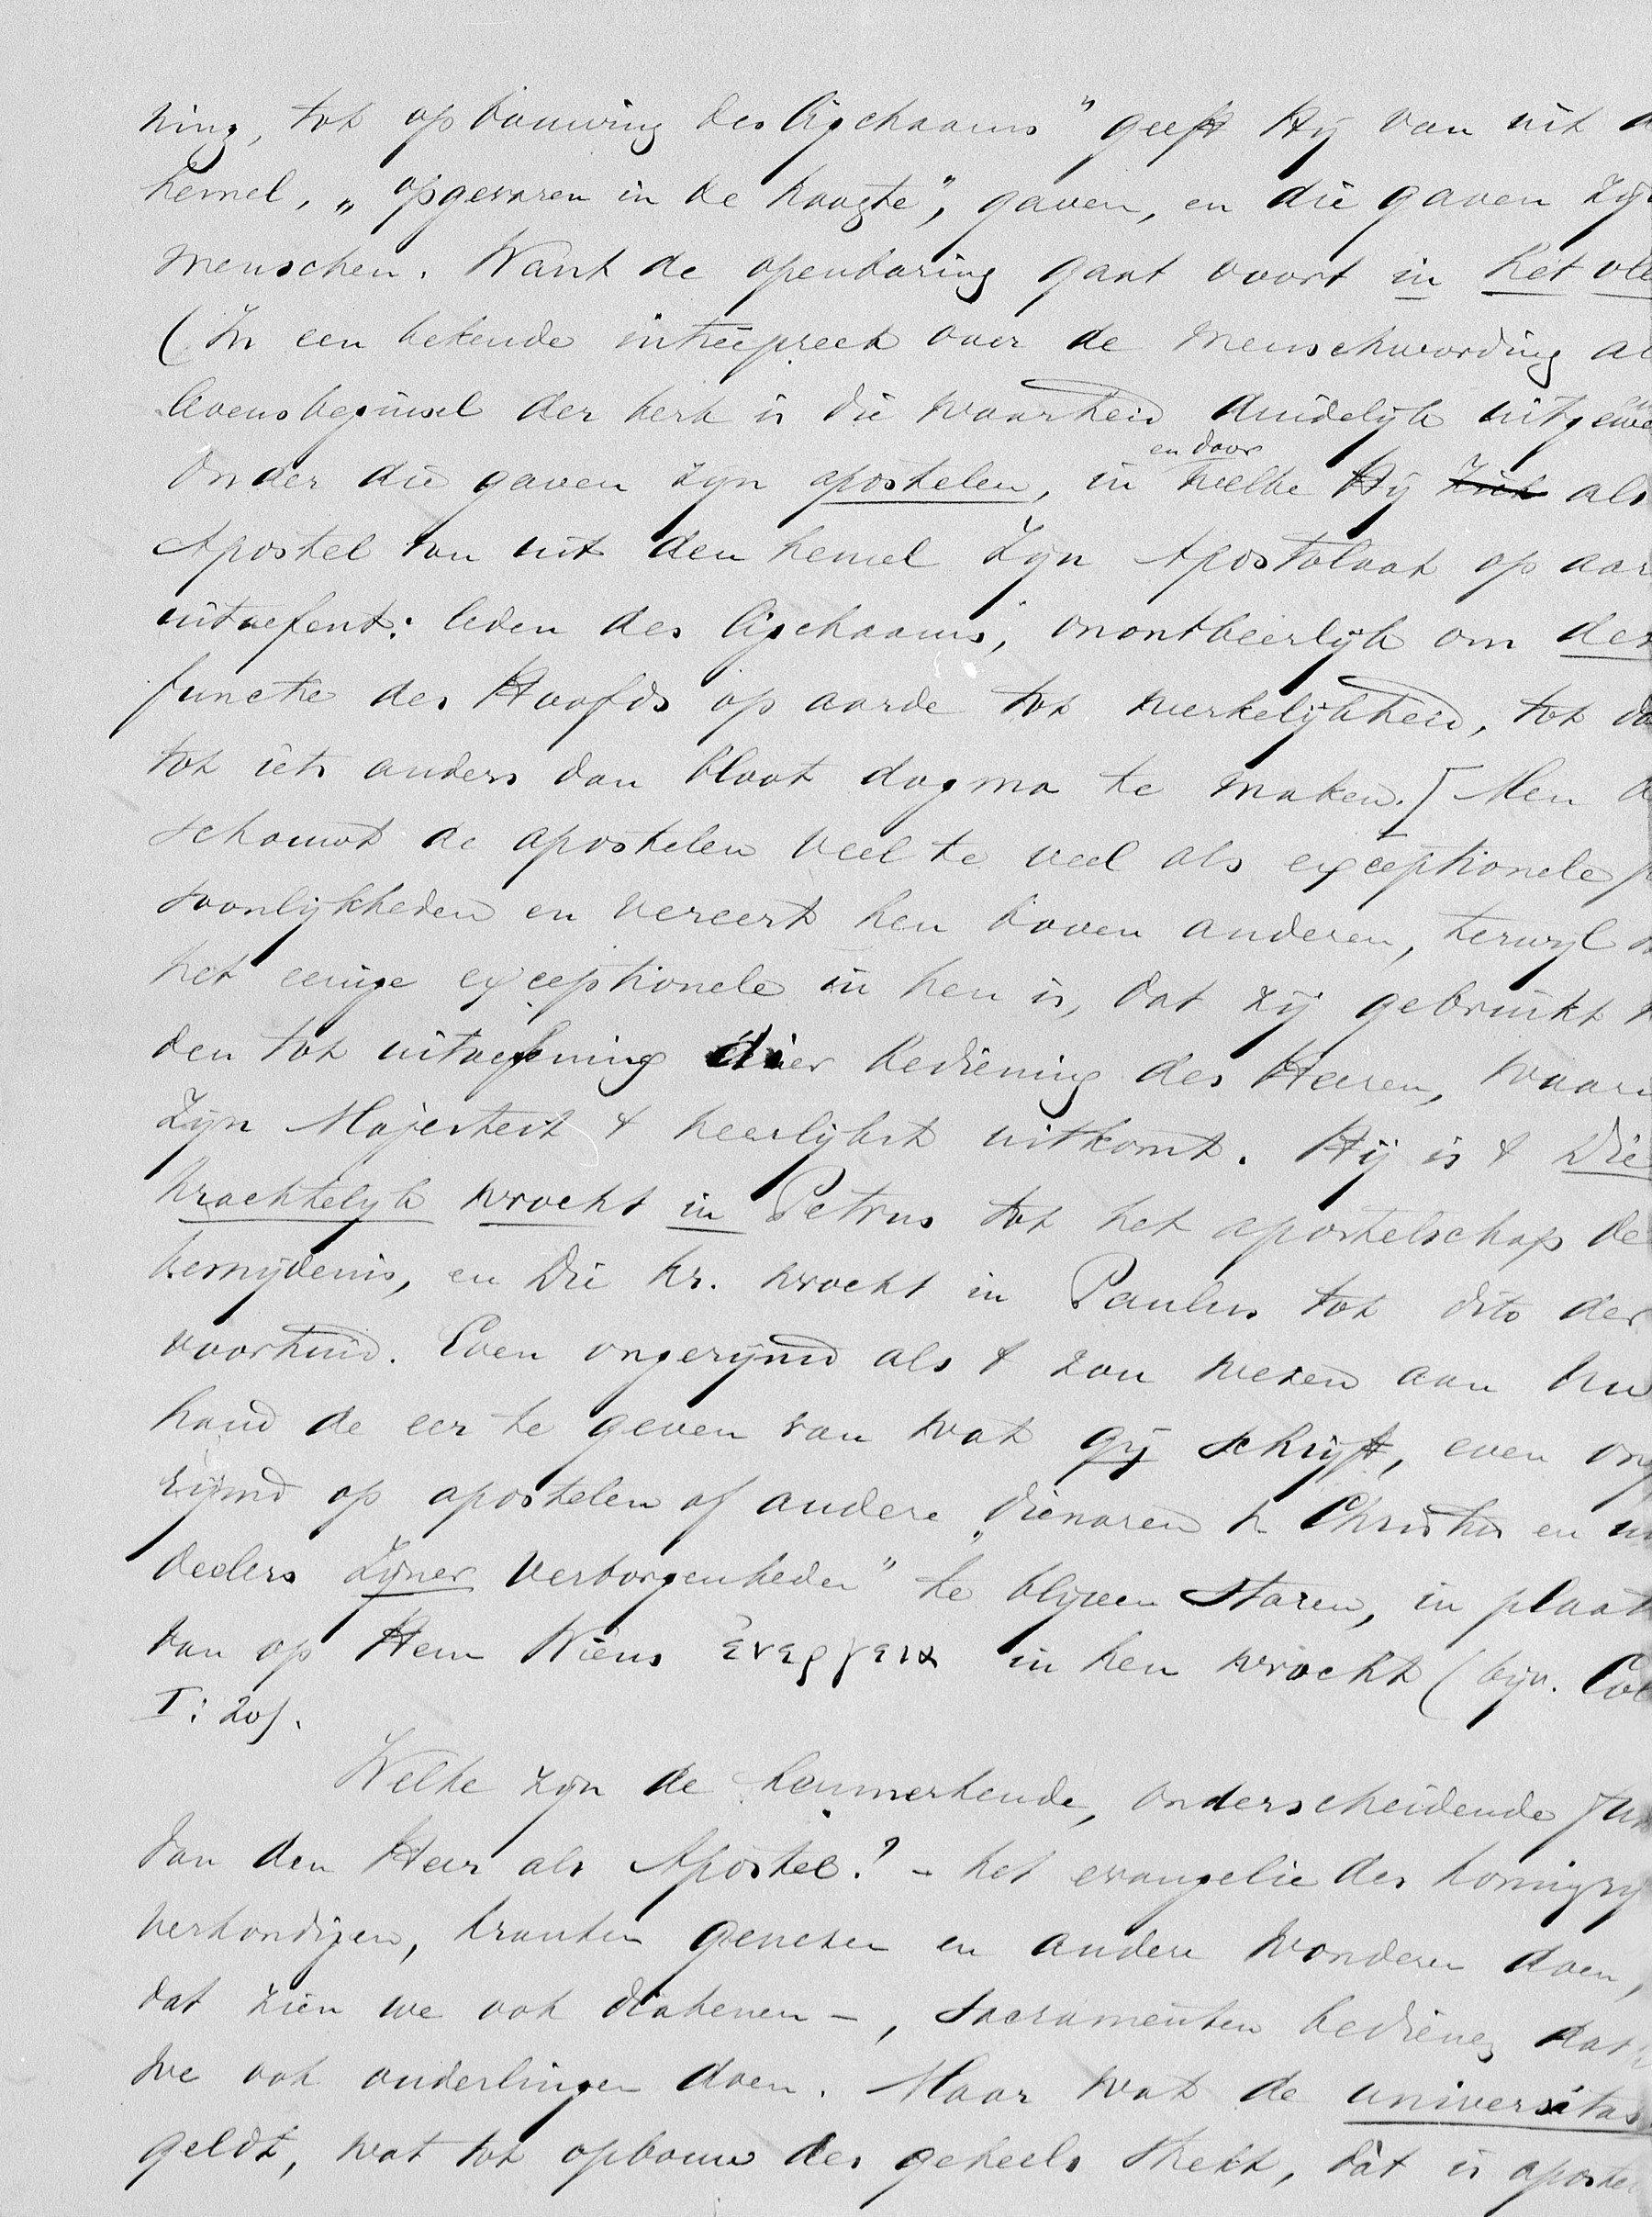 ning, tot opbouwing des ligchaams" geeft Hij van uit d
hemel, „opgevaren in de hoogte", gaven, en die gaven zijn
menschen. Want de openbaring gaat voort in het vle
(In een bekende intreepreek over de menschwording al
levensbeginsel der kerk is die waarheid duidelijk uitge
Onder die gaven zyn apostelen, in en door welke Hij zich als
Apostel van uit den hemel Zijn Apostolaat op aar
uitoefent: leden des ligchaams, onontbeerlijk om dez
functie des Hoofds op aarde tot werkelijkheid, tot da
tot iets anders dan bloot dogma te maken.[ Men be
schouwt de apostelen veel te veel als exceptionele p
soonlijkheden en vereert hen boven anderen, terwijl
het eenige exceptionele in hen is, dat zij gebruikt w
den tot uitoefening dier bediening des Heeren, waari
Zijn Majesteit t heerlijkst uitkomt. Hij is t Die
krachtelijk wrocht in Petrus tot het apostelschap de
besnijdenis, en Die kr. wrocht in Paulus tot dito der
voorhuid. Even ongerijmd als t zou wezen aan Uw
hand de eer te geven van wat gij schrijft, even ong
rijmd op apostelen of andere „dienaren v Christus en ui
deelers Zijner verborgenheden" te blijven staren, in plaat
van op Hem Wiens ἐνεργεια in hen wrocht (bijv. Col
I: 29).
Welke zijn de kenmerkende, onderscheidende fun
van den Heer als Apostel? - het evangelie des koningrij
verkondigen, kranken genezen en andere wonderen doen,
dat zien we ook diakenen -, sacramenten bedienen dat
we ook ouderlingen doen. Maar wat de universitas
geldt, wat tot opbouw des geheels strekt, dát is aposte